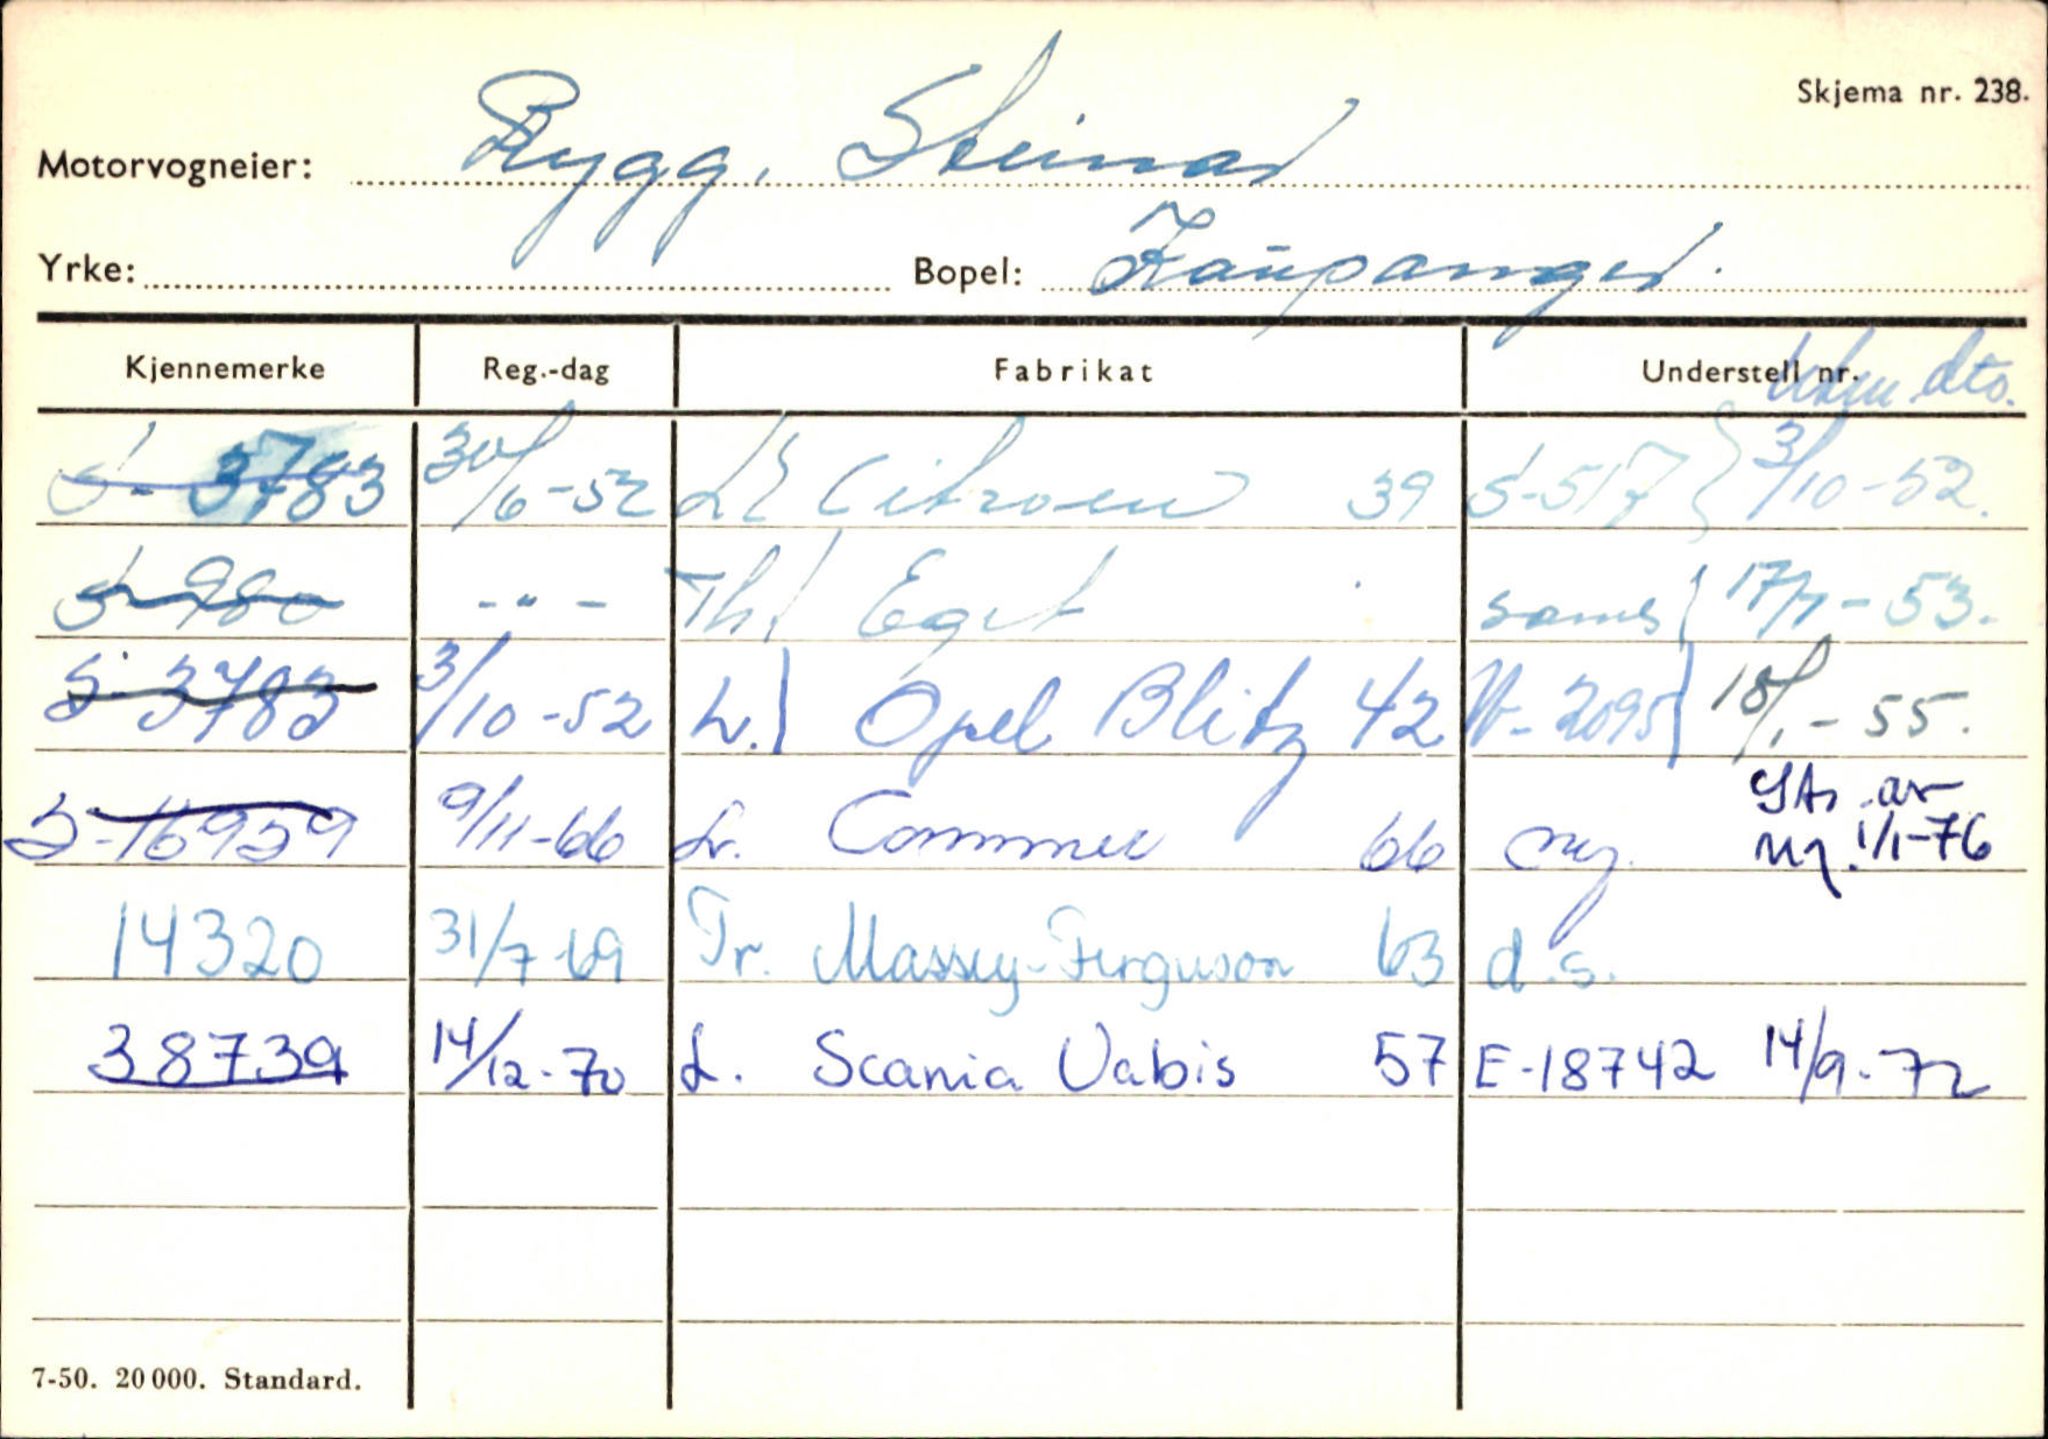 Skjema nr. 238.
Motorvogneier: Rygg, Steinar
Yrke: Bopel: Kaupanger.
Kjennemerke Reg.-dag Fabrikat Understell nr. dto.
S-3783 30/6-52 L Citroen 39 S-517 3/10-52.
S-980 -"- Th Eget sams 17/7-53.
S-3783 3/10-52 L. Opel Blitz 42 W-2095 18/1-55.
S-16959 9/11-66 L. Commer 66 ny. av ny. 1/1-76
14320 31/7-69 Tr. Massey-Ferguson 63 d.s.
38739 14/12-70 L. Scania Vabis 57 E-18742 14/9-72
7-50. 20 000. Standard.